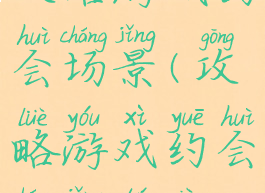 huì chǎng jǐng gōng
会场景(攻
lüè yóu xì yuē huì
略游戏约会